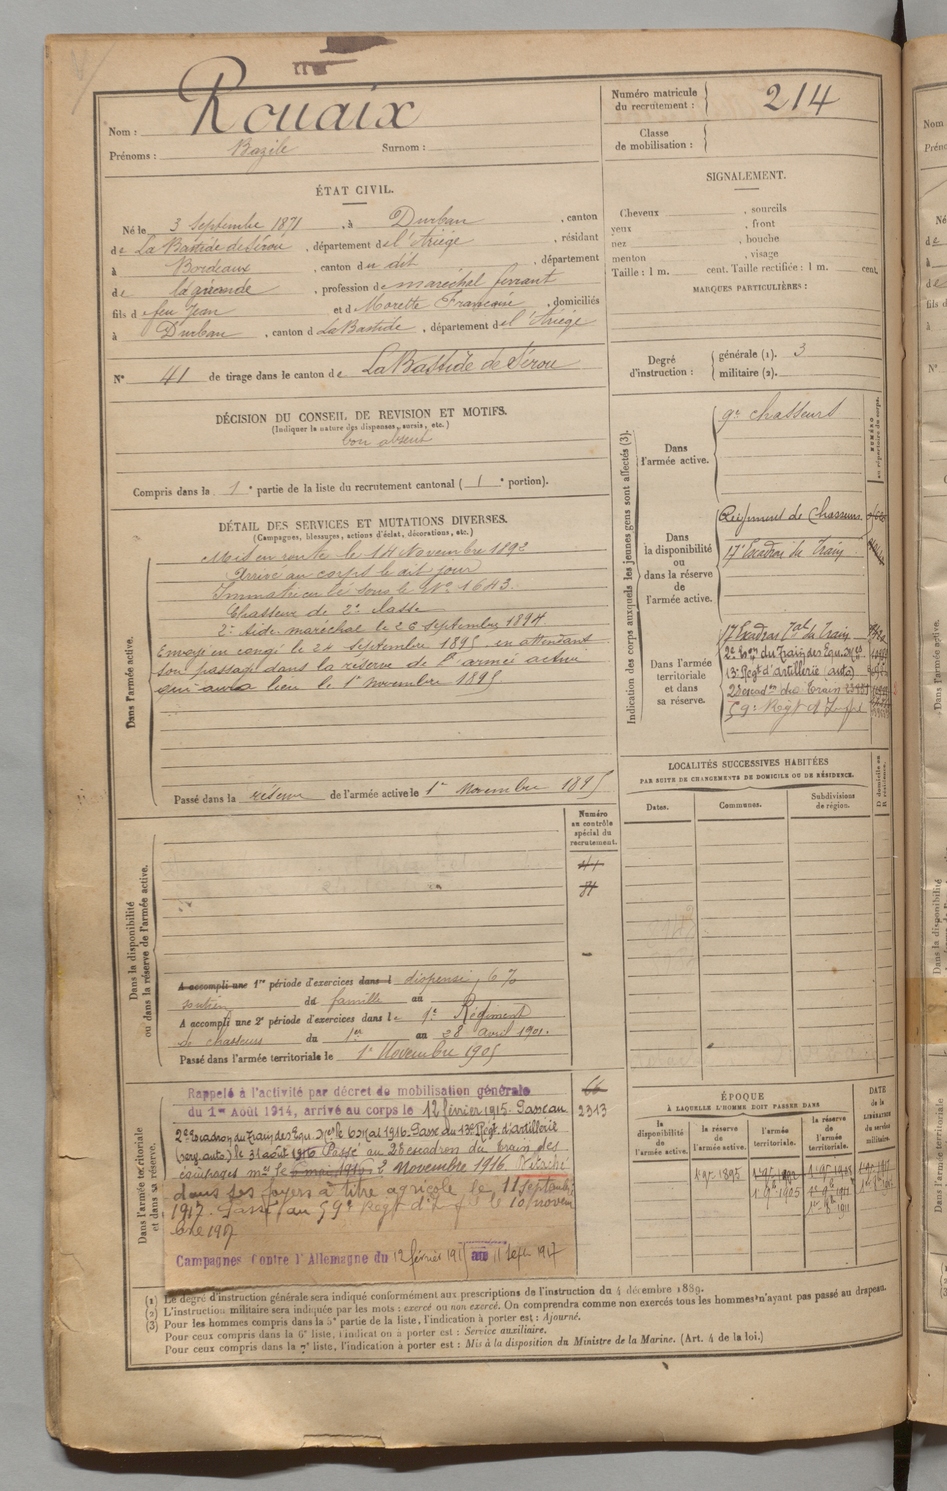 Nom : Rouaix
Prénoms : Bazile Surnom :
Numéro matricule du recrutement : 214
Classe de mobilisation :
ÉTAT CIVIL.
Né le 3 Septembre 1871, à Durban, canton
de La Bastide de Sérou, département de l'Ariège, résidant
à Bordeaux, canton du dit, département
de la gironde, profession de maréchal ferrant
fils de feu Jean et de Morette Françoise, domiciliés
à Durban, canton de La Bastide, département de l'Ariège
N° 41 de tirage dans le canton de La Bastide de Sérou
DÉCISION DU CONSEIL DE REVISION ET MOTIFS.
(Indiquer la nature des dispenses, sursis, etc.)
bon absent
Compris dans la 1e partie de la liste du recrutement cantonal (1e portion).
DÉTAIL DES SERVICES ET MUTATIONS DIVERSES.
(Campagnes, blessures, actions d'éclat, décorations, etc.)
Dans l'armée active.
Mis en route le 14 Novembre 1892
Arrivé au corps le dit jour
Immatriculé sous le N° 1643.
Chasseur de 2e classe
2e Aide maréchal le 26 septembre 1894
Envoyé en congé le 24 septembre 1895, en attendant
son passage dans la réserve de l'armée active
qui aura lieu le 1er novembre 1895
Passé dans la réserve de l'armée active le 1er Novembre 1895
Dans la disponibilité ou dans la réserve de l'armée active.
Numéro au contrôle spécial du recrutement.
41
81
A accompli une 1re période d'exercices dans l dispensé,
soutien du famille au
A accompli une 2e période d'exercices dans le 9e Régiment
de chasseurs du 1er au 28 avril 1901.
Passé dans l'armée territoriale le 1er Novembre 1905
Dans l'armée territoriale et dans sa réserve.
2313
Rappelé à l'activité par décret de mobilisation générale
du 1er Août 1914, arrivé au corps le 12 février 1915. Passé au
2e Escadron du Train des Equ. Mres le 6 Mai 1916. Passé au 13e Régt. d'artillerie
(serv. auto) le 31 août 1916 Passé au 2e escadron du train des
équipages mres le 6 mai 1916. 2 novembre 1916. Détaché
dans ses foyers à titre agricole le 11 septembre
1917. Passé au 59e Régt d'Inf le 10 novem
bre 1917
Campagnes Contre l'Allemagne du 12 février 1915 au 11 sept. 1917
SIGNALEMENT.
Cheveux , sourcils
yeux , front
nez , bouche
menton , visage
Taille : 1 m. cent. Taille rectifiée : 1 m. cent.
MARQUES PARTICULIÈRES :
Degré d'instruction : générale (1). 3
militaire (2).
Indication des corps auxquels les jeunes gens sont affectés (3).
NUMÉRO au répertoire du corps.
Dans l'armée active.
9e chasseurs
Dans la disponibilité ou dans la réserve de l'armée active.
Régiment de Chasseurs
17e Escadron du Train
Dans l'armée territoriale et dans sa réserve.
17 Escadron Tal du Train
2e Esc. du Train des Equ. Mres
13e Régt d'artillerie (auto)
2e escadon du Train
59e Régt d'Inf
LOCALITÉS SUCCESSIVES HABITÉES
PAR SUITE DE CHANGEMENTS DE DOMICILE OU DE RÉSIDENCE.
Dates. Communes. Subdivisions de région. D domicile ou R résidence.
ÉPOQUE
À LAQUELLE L'HOMME DOIT PASSER DANS
la disponibilité de l'armée active. la réserve de l'armée active. l'armée territoriale. la réserve de l'armée territoriale.
DATE de la LIBÉRATION du service militaire.
(1) Le degré d'instruction générale sera indiqué conformément aux prescriptions de l'instruction du 4 décembre 1889.
(2) L'instruction militaire sera indiquée par les mots : exercé ou non exercé. On comprendra comme non exercés tous les hommes n'ayant pas passé au drapeau.
(3) Pour les hommes compris dans la 5e partie de la liste, l'indication à porter est : Ajourné.
Pour ceux compris dans la 6e liste, l'indication à porter est : Service auxiliaire.
Pour ceux compris dans la 7e liste, l'indication à porter est : Mis à la disposition du Ministre de la Marine. (Art. 4 de la loi.)